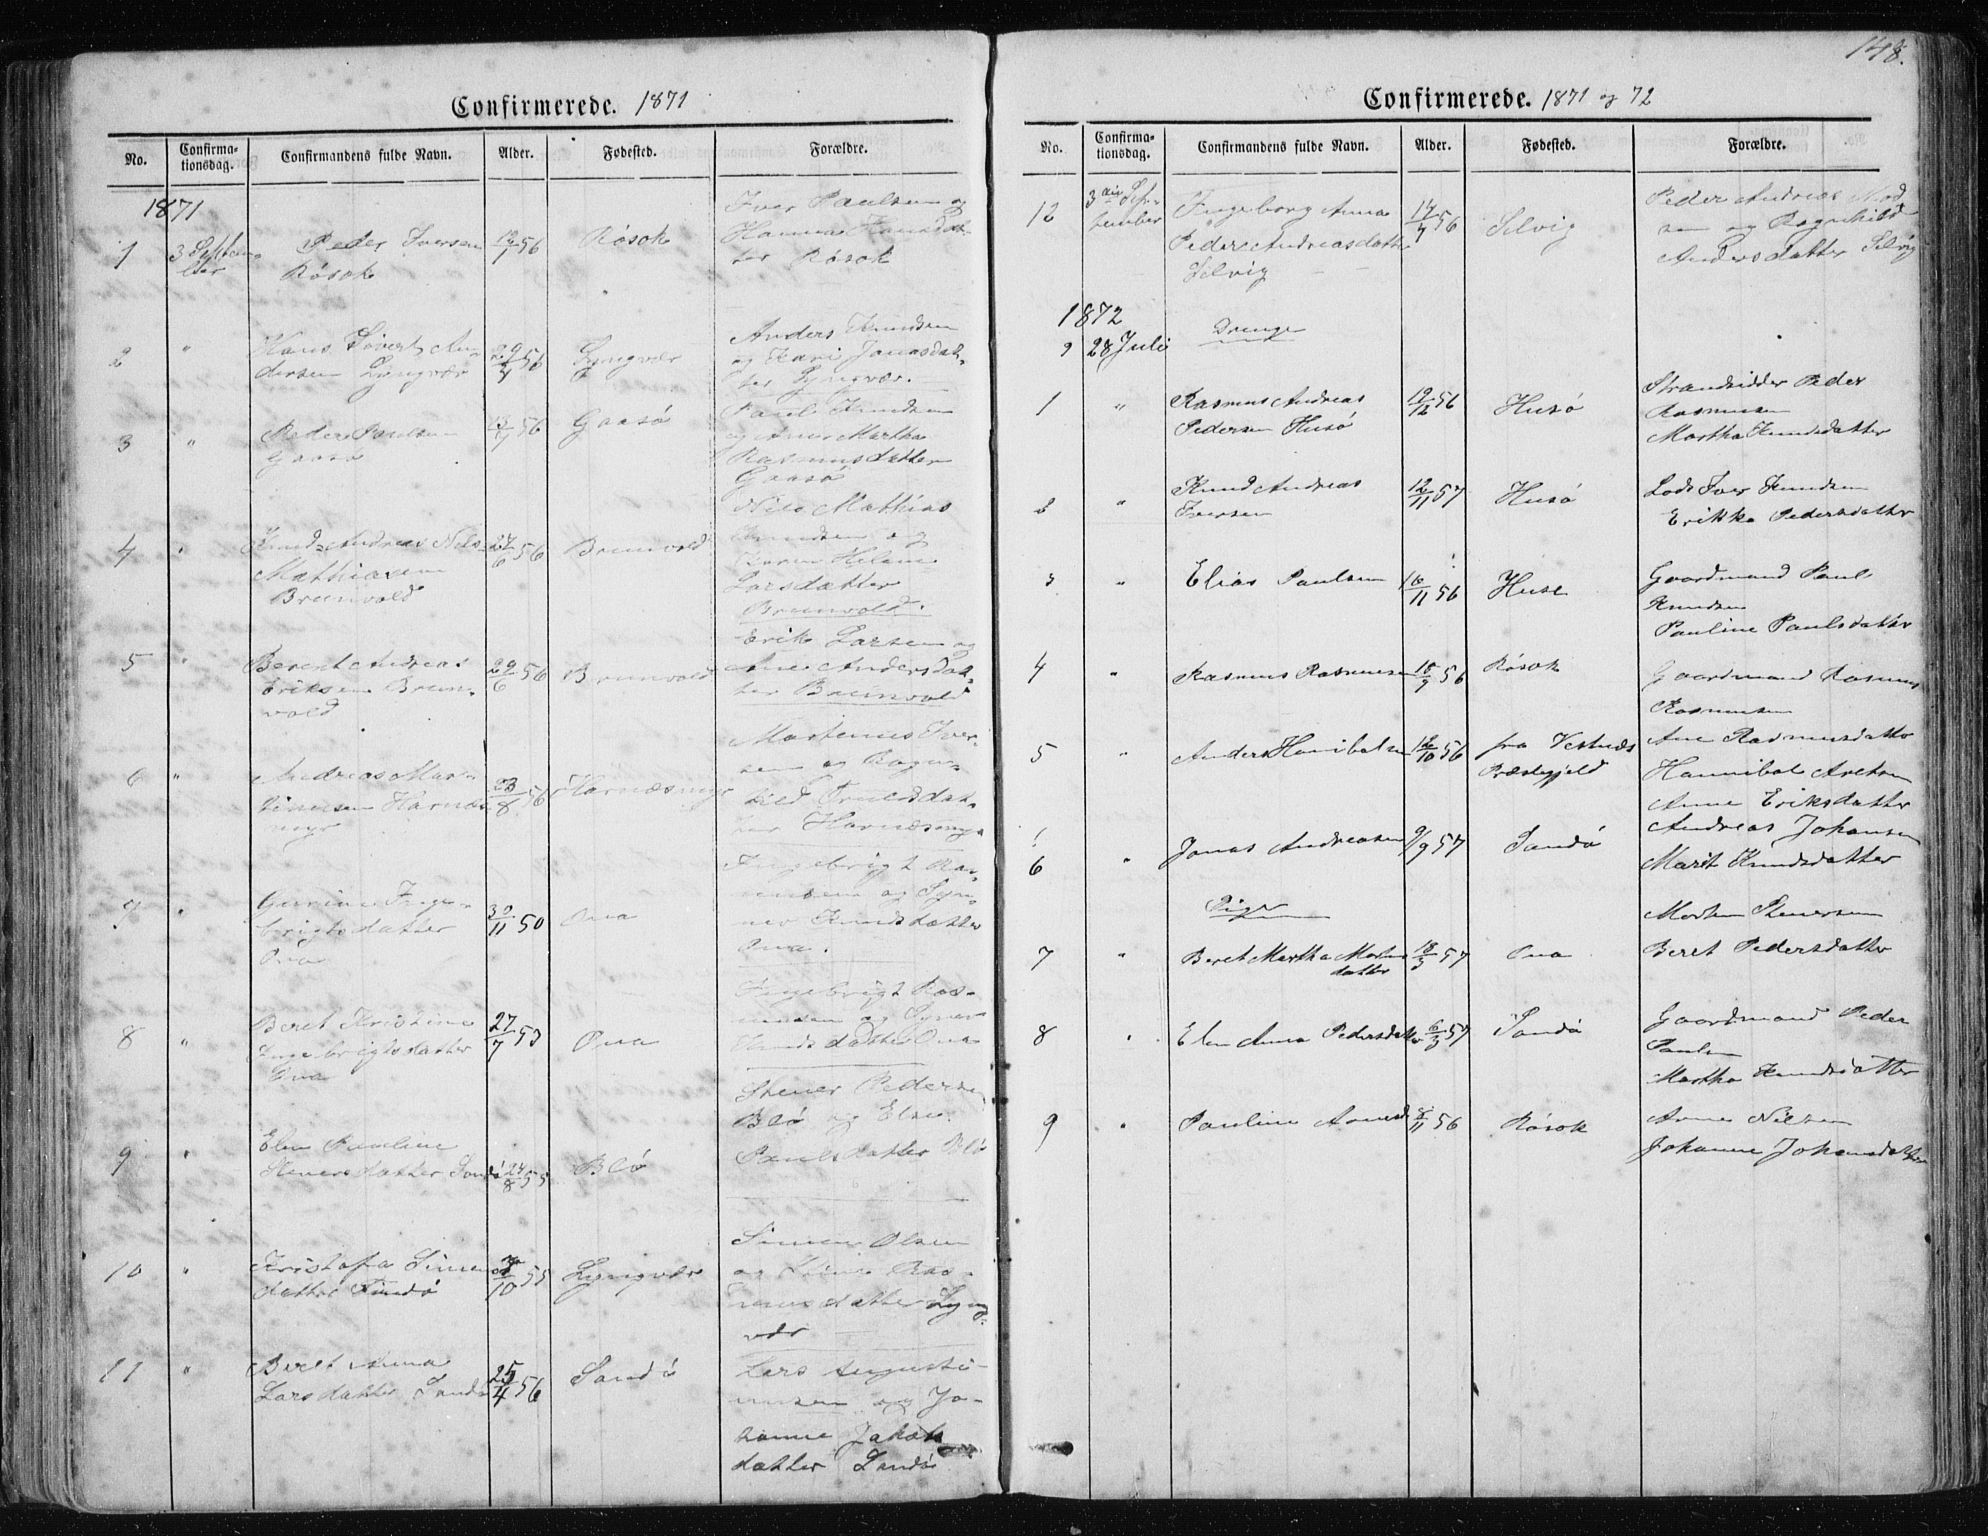 Confirmerede. 1871
No. Confirmationsdag. Confirmandens fulde Navn. Alder. Fødested. Forældre.
1871
1 3 Septem-
ber
Peder Iversen
Røsok
12/7 56
Røsok
Iver Paulsen og
Hanna Hansdat-
ter Røsok
2 "
Hans Sivert An-
dersen Lyngvær
29/4 56
Lyngvær
Anders Knudsen
og Kari Jonasdat-
ter Lyngvær.
3 "
Peder Paulsen
Gaasø
13/7 56
Gaasø
Paul Knudsen
og Ane Martha
Rasmusdatter
Gaasø
4 "
Knud Andreas Nils
Mathiasen
Brunvold
24/6 56
Brunvold
Nils Mathias
Knudsen og
Karen Helene
Larsdatter
Brunvold.
5 "
Berent Andreas
Eriksen Brun-
vold
29/6 56
Brunvold
Erik Larsen og
Ane Andersdat-
ter Brunvold
6 "
Andreas Mar-
tinusen Harnæs-
myr
23/8 56
Harnæsmyr
Martinus Iver-
sen og Ragn-
hild Truelsdat-
ter Harnæsmyr
7 "
Gurine Inge-
brigtsdatter
Ona
30/11 50
Ona
Ingebrigt Ras-
mussen og Syn-
nev Knudsdatter
Ona.
8 "
Beret Kristine
Ingebrigtsdatter
Ona
27/7 53
Ona
Ingebrigt Ras-
mussen og Synnev
Knudsdatter Ona
9 "
Elen Pauline
Stenersdatter Sandø
24/8 55
Blø
Stener Pedersen
Blø og Elen
Paulsdatter Blø
10 "
Kristofa Simens
datter Sandø
/10 55
Lyngvær
Simen Olsen
og Ras-
musdatter Lyng-
vær
11 "
Beret Anna
Larsdatter Sandø
25/4 56
Sandø
Lars Augusti-
nusen og Jo-
hanne Jakobs
datter Sandø
148.
Confirmerede. 1871 og 72
No. Confirmationsdag. Confirmandens fulde Navn. Alder. Fødested. Forældre.
12 3die Sep-
tember
Ingeborg Anna
Peder Andreasdatter
Selvig
14/7 56
Selvig
Peder Andreas Mad
sen og Ragnhild
Andersdatter Selvig
1872
28 Juli
Drenge
1 "
Rasmus Andreas
Pedersen Husø
12/12 56
Husø
Strandsidder Peder
Rasmusen
Martha Knudsdatter
2 "
Knud Andreas
Iversen
12/11 57
Husø
Lods Iver Knudsen
Erikke Pedersdatter
3 "
Elias Paulsen
16/11 56
Huse
Gaardmand Paul
Knudsen
Pauline Paulsdatter
4 "
Rasmus Rasmusen
18/9 56
Røsok
Gaardmand Rasmus
Rasmusen
Ane Rasmusdatter
5 "
Anders Hanibalsen
12/10 56
fra Vestnæs
Præstegjeld
Hannibal Aretsen
Anne Eriksdatter
6 "
Jonas Andreasen
9/9 57
Sandø
Andreas Johansen
Marit Knudsdatter
Piger
7 "
Beret Martha Mortens
datter
18/3 57
Ona
Morten Stenersen
Beret Pedersdatter
8 "
Elen Anna Pedersdatter
6/3 57
Sandø
Gaardmand Peder
Paulsen
Martha Knudsdatter
9 "
Pauline Arnesd
8/11 56
Røsok
Arne Nilsen
Johanne Johansdatter